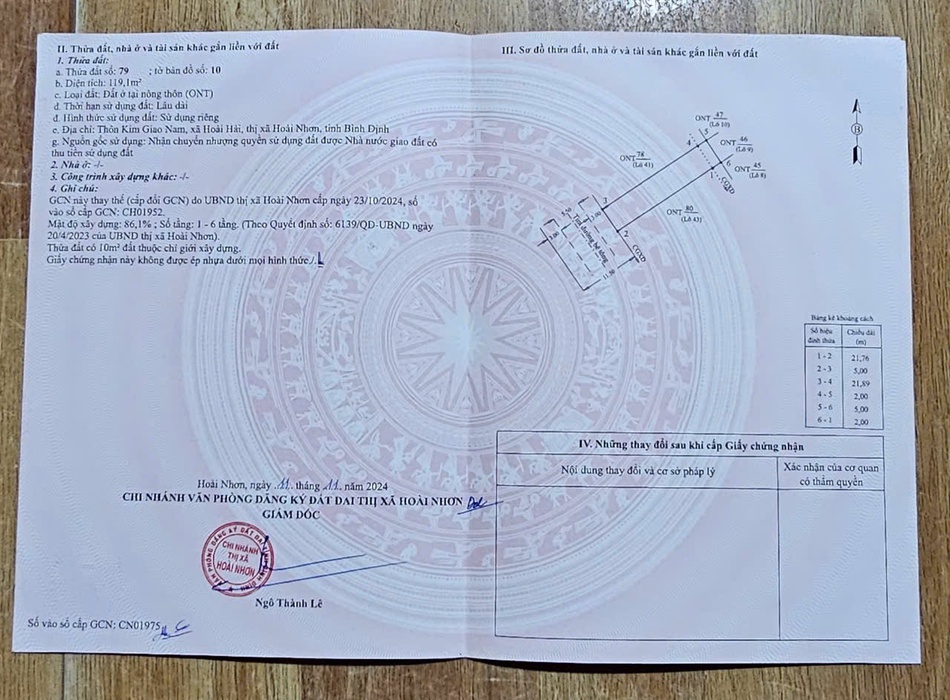 II. Thửa đất, nhà ở và tài sản khác gắn liền với đất
1. Thửa đất:
a. Thửa đất số: 79 ; tờ bản đồ số: 10
b. Diện tích: 119,1m²
c. Loại đất: Đất ở tại nông thôn (ONT)
d. Thời hạn sử dụng đất: Lâu dài
đ. Hình thức sử dụng đất: Sử dụng riêng
e. Địa chỉ: Thôn Kim Giao Nam, xã Hoài Hải, thị xã Hoài Nhơn, tỉnh Bình Định
g. Nguồn gốc sử dụng: Nhận chuyển nhượng quyền sử dụng đất được Nhà nước giao đất có
thu tiền sử dụng đất
2. Nhà ở: -/-
3. Công trình xây dựng khác: -/-
4. Ghi chú:
GCN này thay thế (cấp đổi GCN) do UBND thị xã Hoài Nhơn cấp ngày 23/10/2024, số
vào sổ cấp GCN: CH01952.
Mật độ xây dựng: 86,1% ; Số tầng: 1 - 6 tầng. (Theo Quyết định số: 6139/QĐ-UBND ngày
20/4/2023 của UBND thị xã Hoài Nhơn).
Thửa đất có 10m² đất thuộc chỉ giới xây dựng.
Giấy chứng nhận này không được ép nhựa dưới mọi hình thức./.
Hoài Nhơn, ngày 11 tháng 11 năm 2024
CHI NHÁNH VĂN PHÒNG ĐĂNG KÝ ĐẤT ĐAI THỊ XÃ HOÀI NHƠN
GIÁM ĐỐC
CHI NHÁNH
THỊ XÃ
HOÀI NHƠN
Ngô Thành Lê
Số vào sổ cấp GCN: CN01975
III. Sơ đồ thửa đất, nhà ở và tài sản khác gắn liền với đất
B
ONT 47
(Lô 10)
5
ONT 46
(Lô 9)
4
ONT 78
(Lô 41)
6
ONT 45
(Lô 8)
1
CGXD
3
ONT 80
(Lô 43)
2
3,00
CGXD
Bảng kê khoảng cách
Số hiệu đỉnh thửa Chiều dài (m)
1 - 2 21,76
2 - 3 5,00
3 - 4 21,89
4 - 5 2,00
5 - 6 5,00
6 - 1 2,00
IV. Những thay đổi sau khi cấp Giấy chứng nhận
Nội dung thay đổi và cơ sở pháp lý
Xác nhận của cơ quan
có thẩm quyền